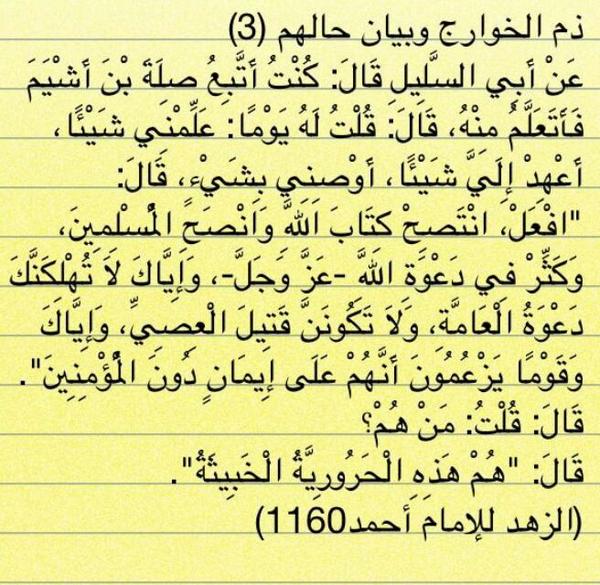 ذم الخوارج وبيان حالهم (3)
عَنْ أبِي السَّلِيلِ قَالَ: كُنْتُ أتَّبِعُ صِلَةَ بْنَ أشْيَمَ
فَأتَعَلَّمُ مِنْهُ، قَالَ: قُلْتُ لَهُ يَوْمًا: عَلِّمْنِي شَيْئًا،
أعْهِدْ إلَيَّ شَيْئًا، أوْصِنِي بِشَيْءٍ، قَالَ:
"افْعَلْ، انْتَصِحْ كِتَابَ اللهَّ وَانْصَحِ الْمُسْلِمِينَ،
وَكَثِّرْ فِي دَعْوَةِ اللهَّ -عَزَّ وَجَلَّ-، وَإيَّاكَ لاَ تُهْلِكَنَّكَ
دَعْوَةُ الْعَامَّةِ، وَلاَ تَكُونَنَّ قَتِيلَ الْعِصِيِّ، وَإيَّاكَ
وَقَوْمًا يَزْعُمُونَ أنَّهُمْ عَلَى إيمَانٍ دُونَ الْمُؤْمِنِينَ".
قَالَ: قُلْتُ: مَنْ هُمْ؟
قَالَ: "هُمْ هَذِهِ الْحَرُورِيَّةُ الْخَبِيثَةُ".
(الزهد للإمام أحمد1160)